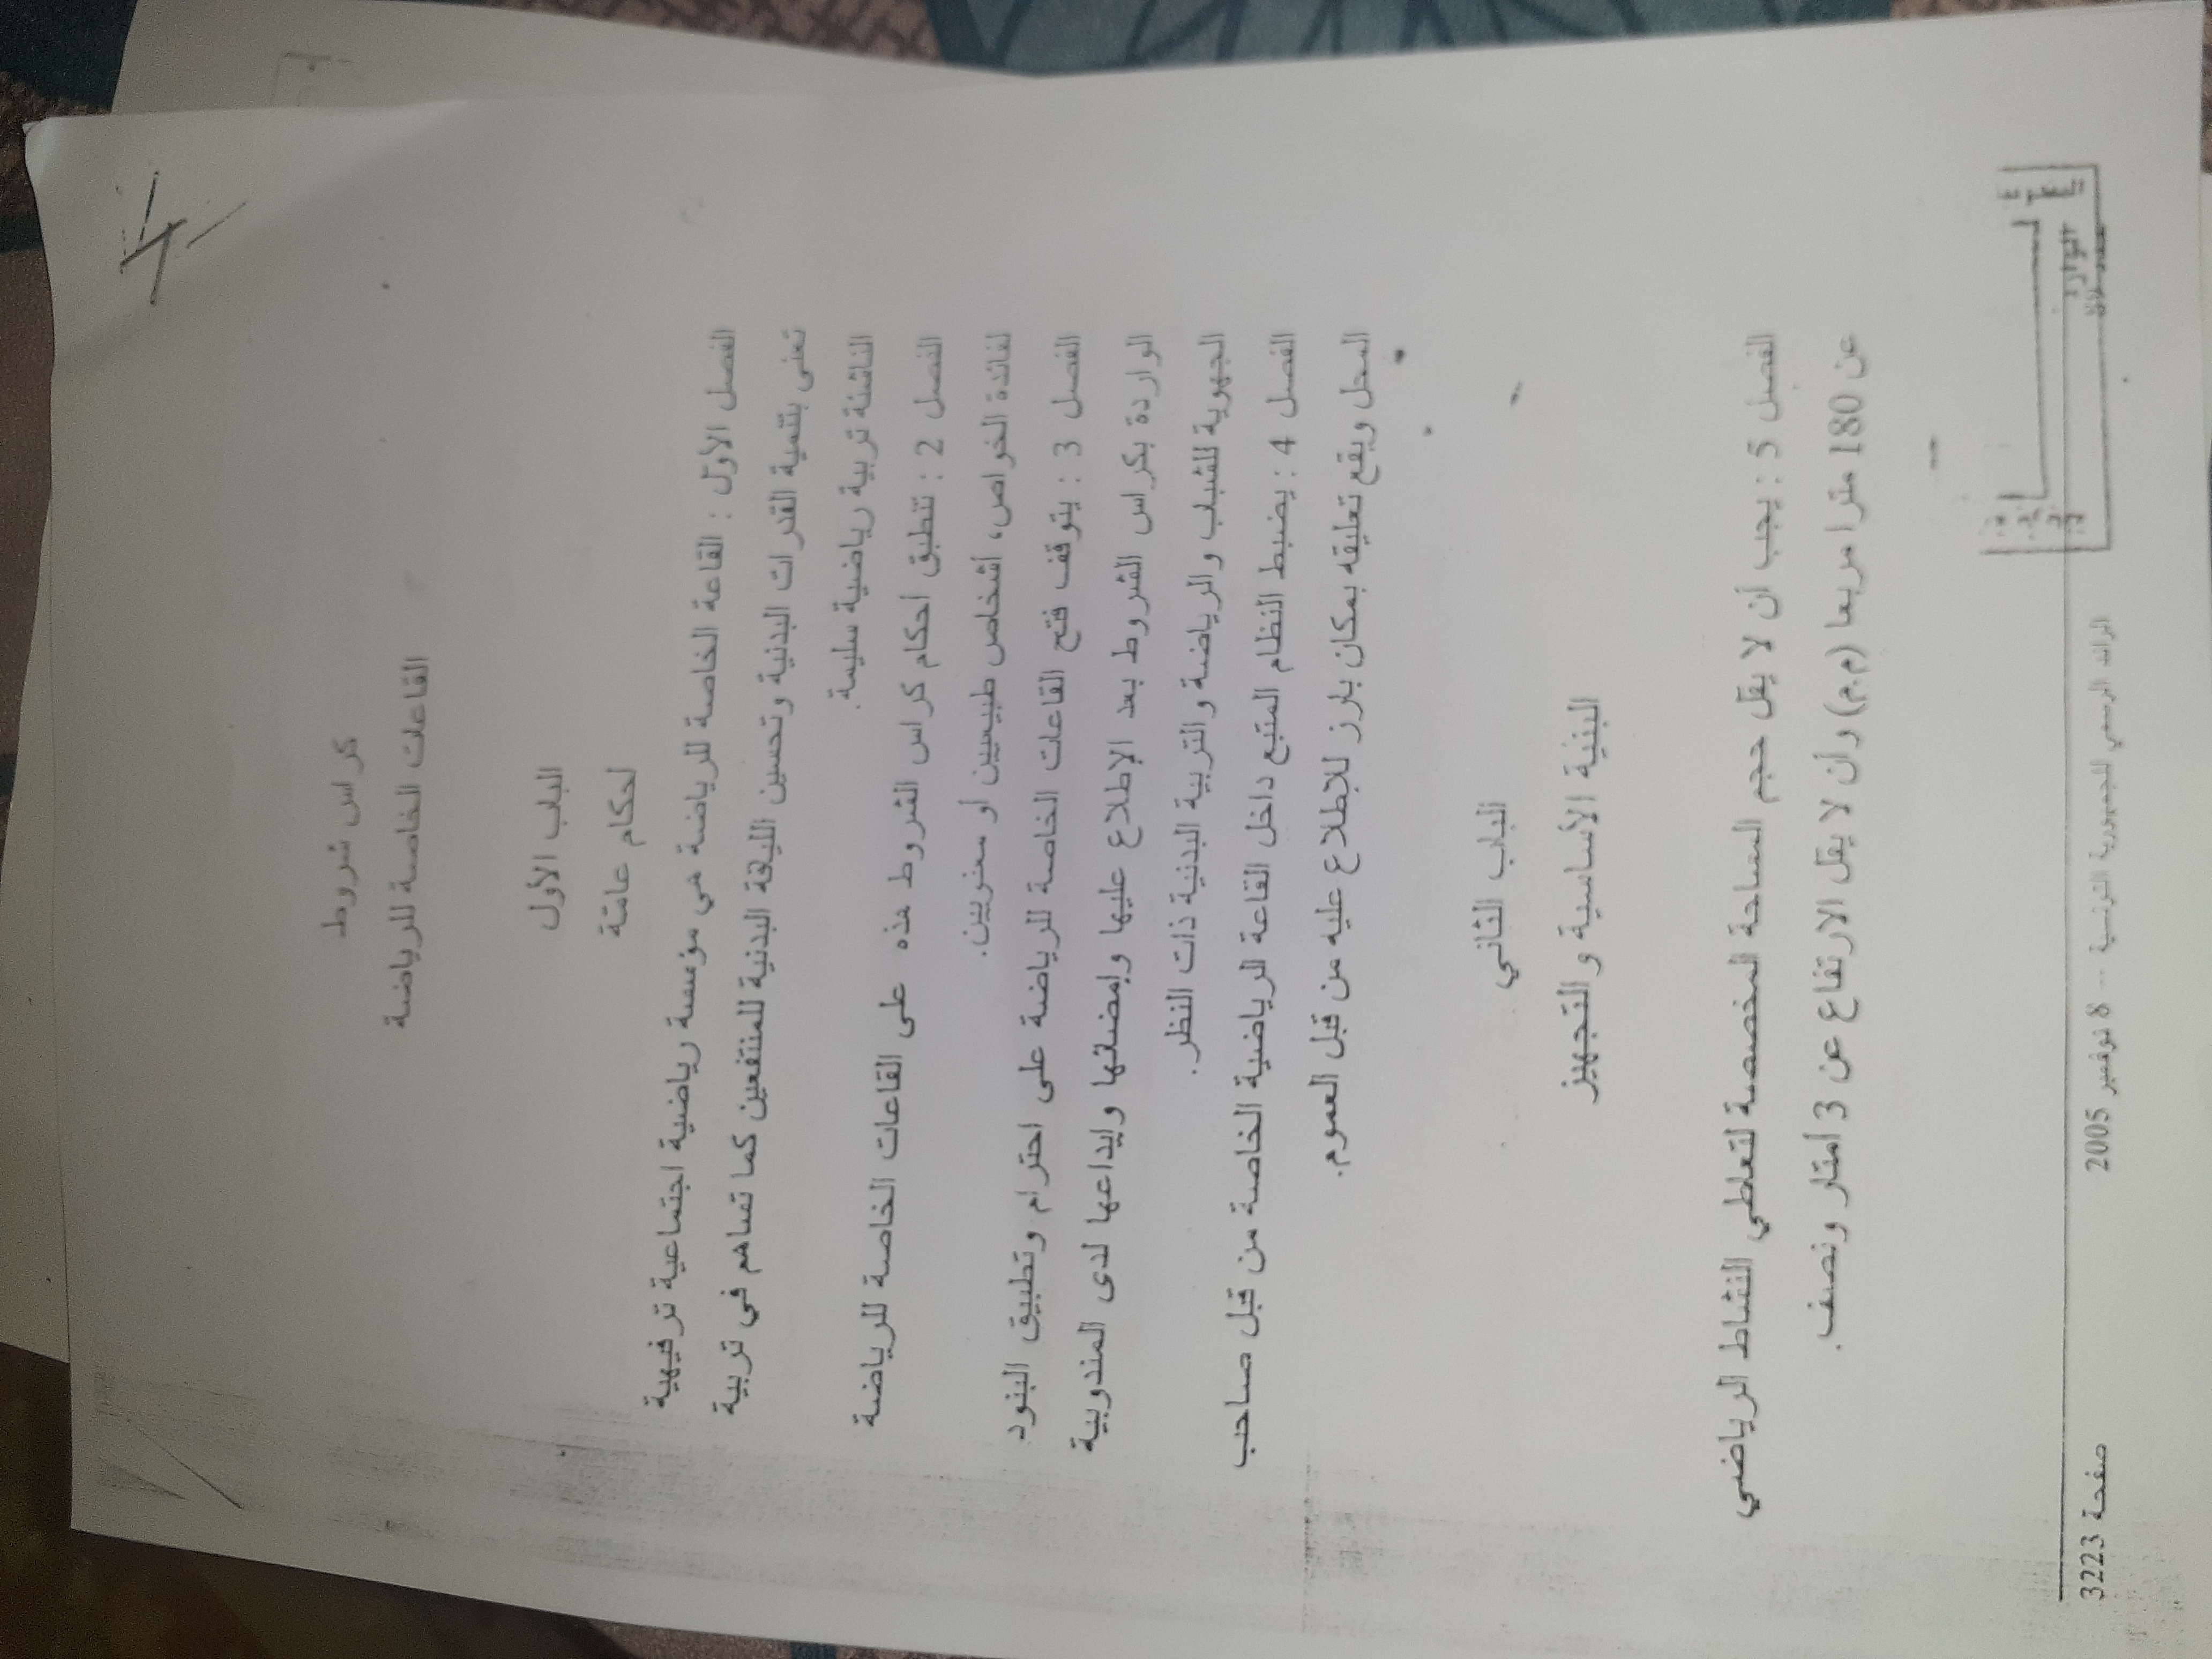 كراس شروط
القاعات الخاصة للرياضة
الباب الأول
أحكام عامة
الفصل الأول : القاعة الخاصة للرياضة هي مؤسسة رياضية اجتماعية ترفيهية
تعنى بتنمية القدرات البدنية وتحسين اللياقة البدنية للمنتفعين كما تساهم في تربية
الناشئة تربية رياضية سليمة.
الفصل 2 : تنطبق أحكام كراس الشروط هذه على القاعات الخاصة للرياضة
لفائدة الخواص، أشخاص طبيعيين أو معنويين.
الفصل 3 : يتوقف فتح القاعات الخاصة للرياضة على احترام وتطبيق البنود
الواردة بكراس الشروط بعد الإطلاع عليها وإمضائها وإيداعها لدى المندوبية
الجهوية للشباب والرياضة والتربية البدنية ذات النظر.
الفصل 4 : يضبط النظام المتبع داخل القاعة الرياضية الخاصة من قبل صاحب
المحل ويقع تعليقه بمكان بارز للإطلاع عليه من قبل العموم.
الباب الثاني
البنية الأساسية والتجهيز
الفصل 5 : يجب أن لا يقل حجم المساحة المخصصة لتعاطي النشاط الرياضي
عن 180 مترا مربعا (م.م) وأن لا يقل الارتفاع عن 3 أمتار ونصف.
صفحة 3223
الرائد الرسمي للجمهورية التونسية -- 8 نوفمبر 2005